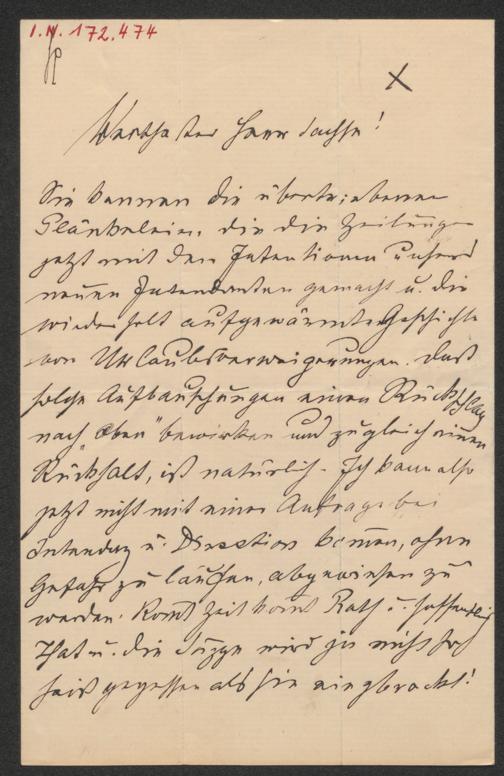 I.N. 172.474
Werthester Herr Sachse!
Sie kennen die übertriebenen
Plänkeleien, die die Zeitungen
jetzt mit den Intentionen unseres
neuen Intendanten gemacht u. die
wiederholt aufgewärmte Geschichte
von Urlaubsverweigerungen. Daß
solche Aufbauschungen einen Rückschlag
nach „Oben" bewirken und zugleich einen
Rückhalt, ist natürlich. Ich kann also
jetzt nicht mit einer Anfrage bei
Intendanz u. Direction kommen, ohne
Gefahr zu laufen, abgewiesen zu
werden. Komt Zeit komt Rath u. hoffentlich
That u. die Suppe wird ja nicht so
heiß gegessen als sie eingebrockt!